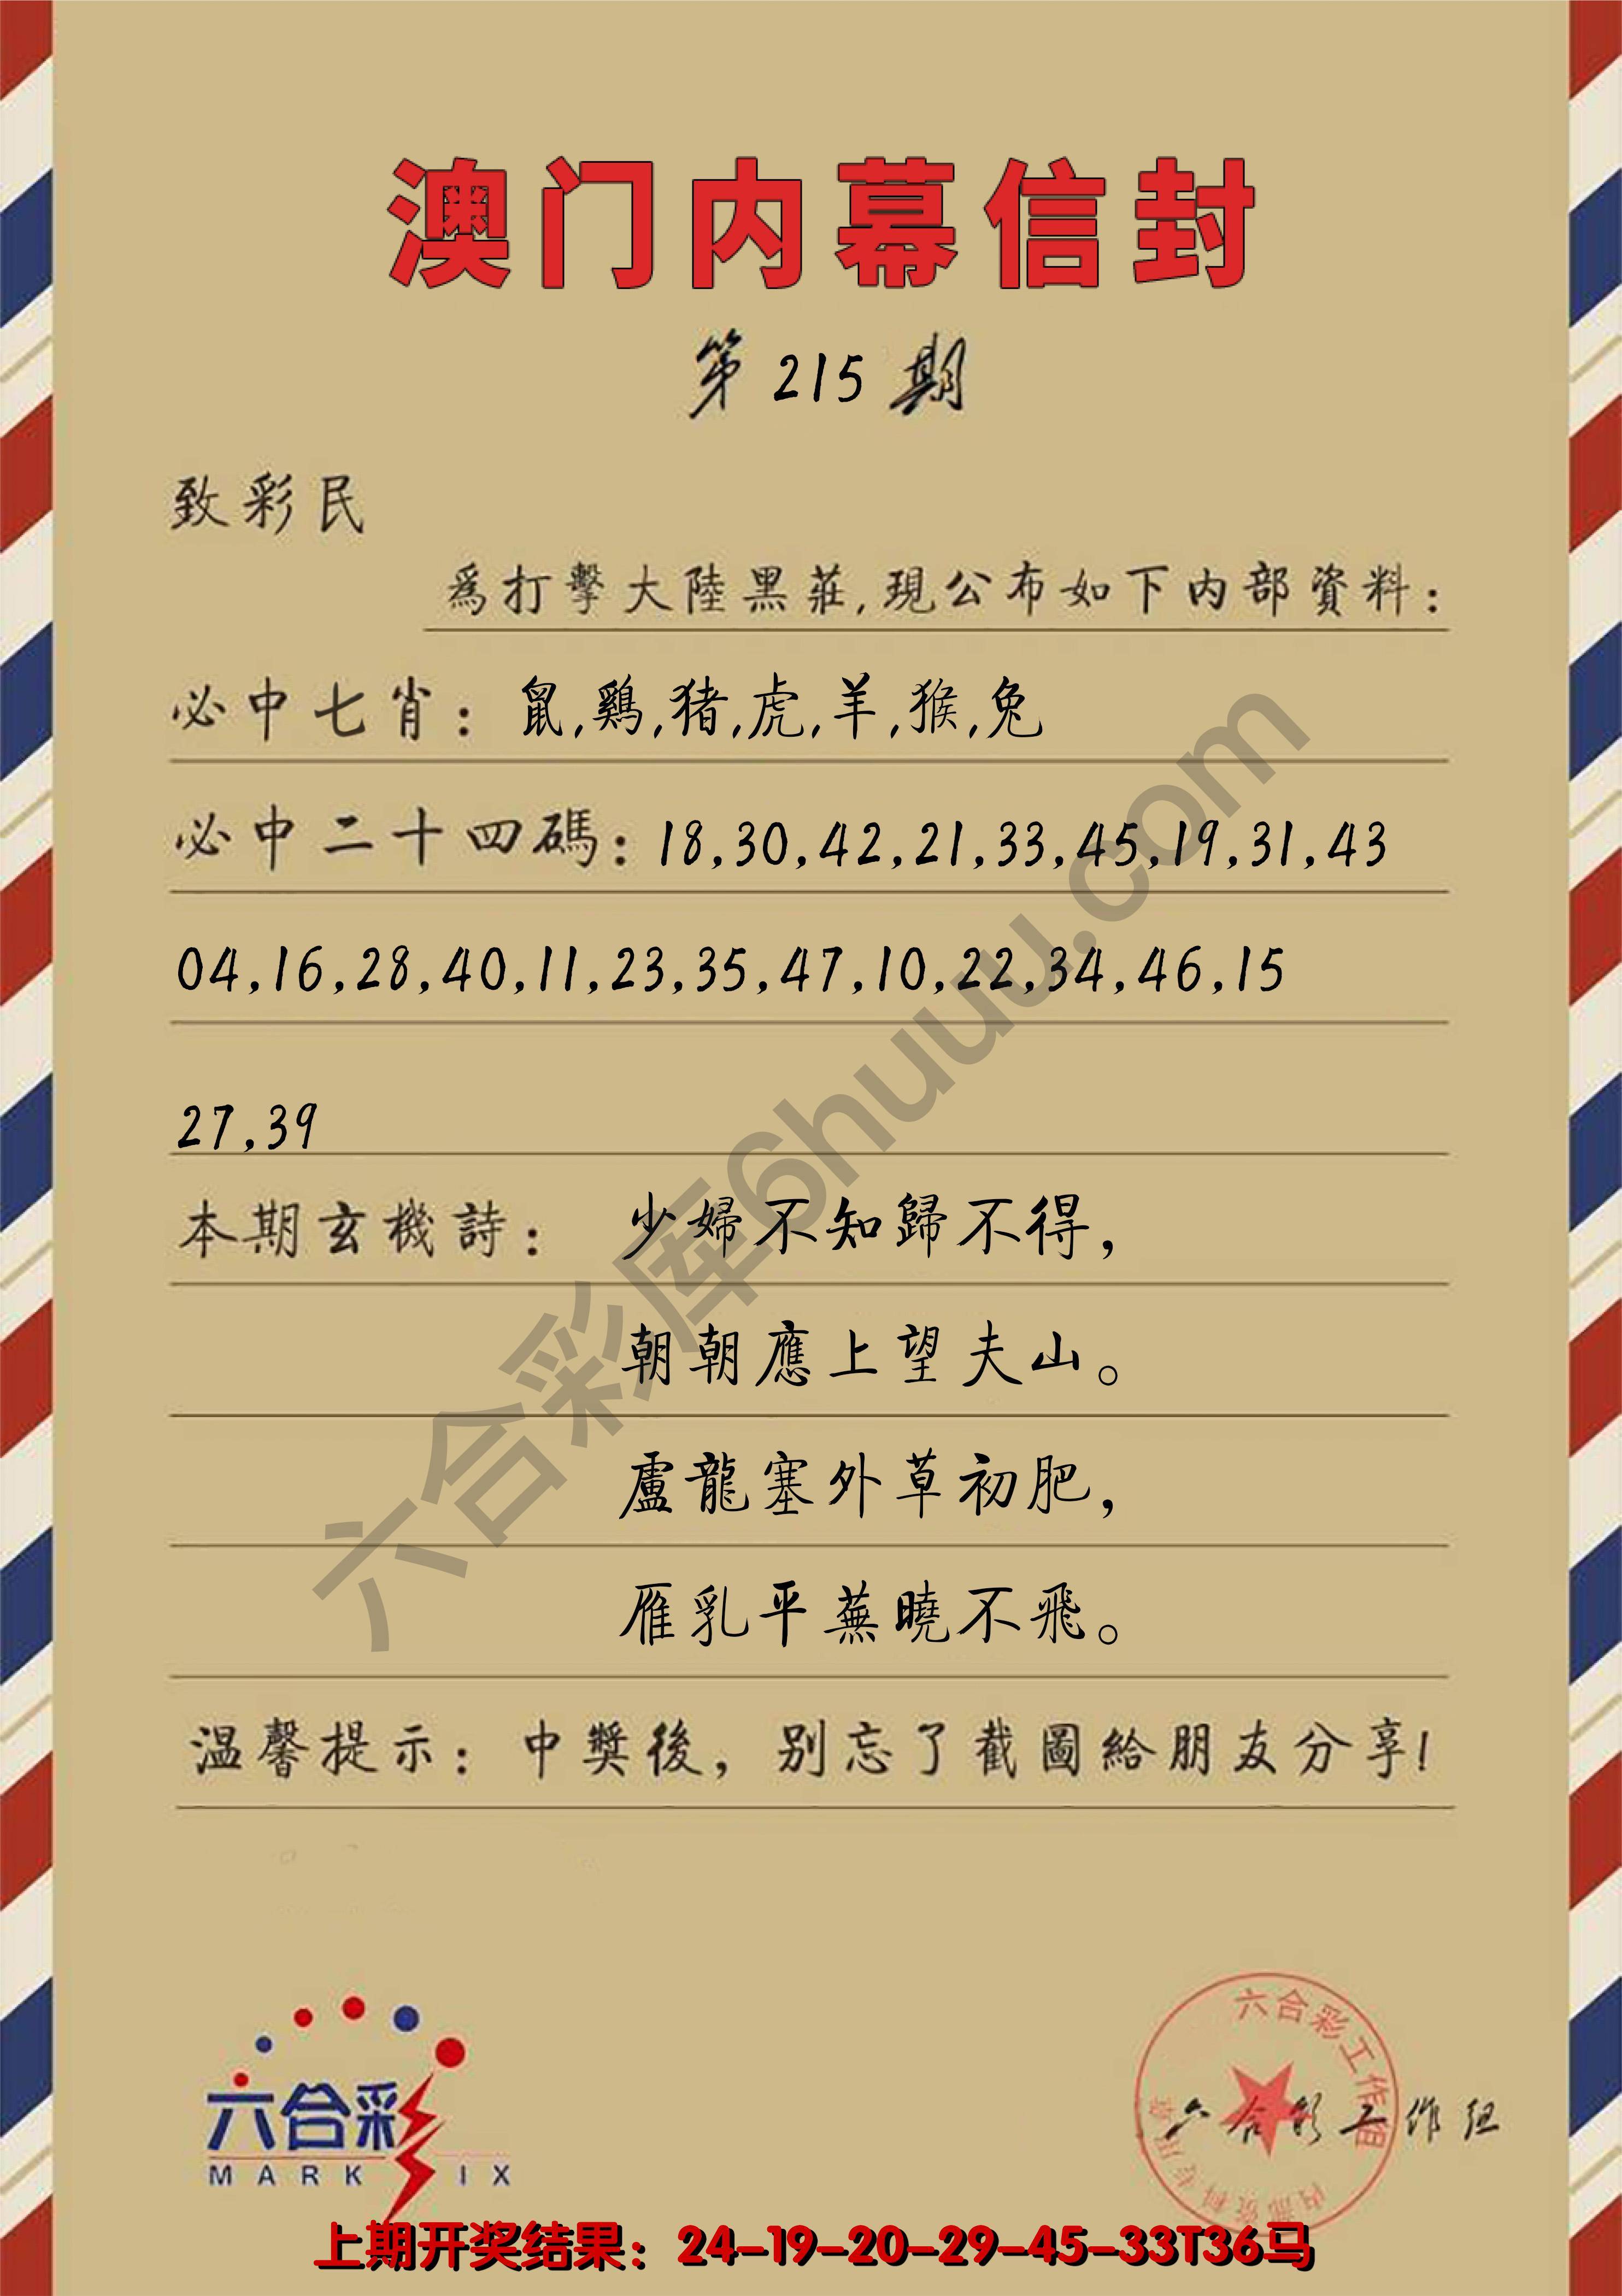 澳门内幕信封
第215期
致彩民
爲打擊大陸黑莊,現公布如下内部資料:
必中七肖: 鼠,鷄,猪,虎,羊,猴,兔
必中二十四碼: 18,30,42,21,33,45,19,31,43
04,16,28,40,11,23,35,47,10,22,34,46,15
27,39
本期玄機詩: 少婦不知歸不得,
朝朝應上望夫山。
盧龍塞外草初肥,
雁乳平蕪曉不飛。
温馨提示: 中獎後, 别忘了截圖給朋友分享!
六合彩库6huuu.com
六合彩
MARK IX
六合彩工作组
六合彩工作组
内部资料专用章
上期开奖结果: 24-19-20-29-45-33T36马